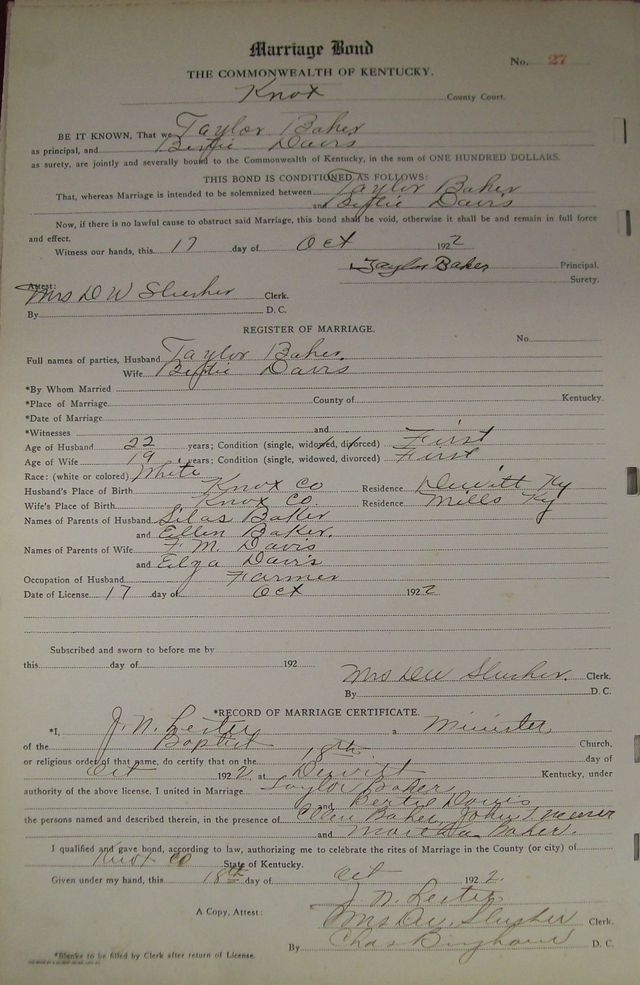 Marriage Bond
No. 27
THE COMMONWEALTH OF KENTUCKY.
Knox County Court.
BE IT KNOWN, That we Taylor Baker
as principal, and Birtie Davis
as surety, are jointly and severally bound to the Commonwealth of Kentucky, in the sum of ONE HUNDRED DOLLARS.
THIS BOND IS CONDITIONED AS FOLLOWS:
That, whereas Marriage is intended to be solemnized between Taylor Baker
and Birtie Davis
Now, if there is no lawful cause to obstruct said Marriage, this bond shall be void, otherwise it shall be and remain in full force
and effect.
Witness our hands, this 17 day of Oct 1922
Taylor Baker Principal.
Surety.
Attest:
Mrs D W Slusher Clerk.
By D. C.
REGISTER OF MARRIAGE.
No.
Full names of parties, Husband Taylor Baker.
Wife Birtie Davis
*By Whom Married
*Place of Marriage County of Kentucky.
*Date of Marriage
*Witnesses and
Age of Husband 22 years; Condition (single, widowed, divorced) First
Age of Wife 19 years; Condition (single, widowed, divorced) First
Race: (white or colored) White
Husband's Place of Birth Knox Co Residence Dewitt Ky
Wife's Place of Birth Knox Co. Residence Mills Ky
Names of Parents of Husband Silas Baker
and Ellen Baker.
Names of Parents of Wife F. M. Davis
and Elza Davis
Occupation of Husband Farmer
Date of License 17 day of Oct 1922
Subscribed and sworn to before me by
this day of 192
Mrs DW Slusher. Clerk.
By D. C.
*RECORD OF MARRIAGE CERTIFICATE.
*I, J. N. Lester a Minister
of the Baptist Church,
or religious order of that name, do certify that on the 18th day of
Oct 1922, at Dewitt Kentucky, under
authority of the above license, I united in Marriage Taylor Baker
and Bertie Davis
the persons named and described therein, in the presence of Ellen Baker, John
and Martha Baker.
I qualified and gave bond, according to law, authorizing me to celebrate the rites of Marriage in the County (or city) of
Knox Co State of Kentucky.
Given under my hand, this 18th day of Oct 1922.
J. N. Lester
A Copy, Attest: Mrs DW. Slusher Clerk.
By Chas Binghams D. C.
*Blanks to be filled by Clerk after return of License.